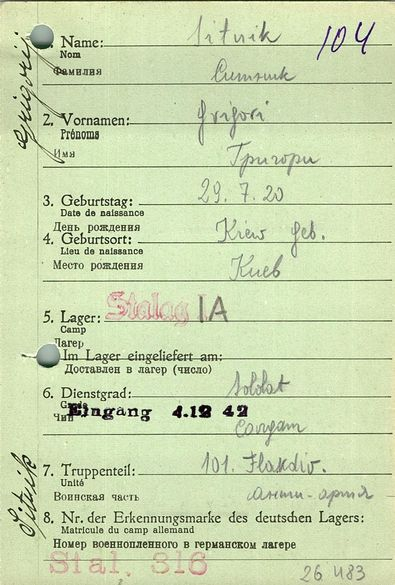 Grigori
1. Name: Sitnik 104
Nom
Фамилия Ситник
2. Vornamen: Grigori
Prénoms
Имя Григори
3. Geburtstag: 29. 7. 20
Date de naissance
День рождения
4. Geburtsort: Kiew Geb.
Lieu de naissance
Место рождения Киев
Stalag IA
5. Lager:
Camp
Лагер
Im Lager eingeliefert am:
Доставлен в лагер (число)
6. Dienstgrad: Soldat
Grade
Eingang 4.12 42
Чин Солдат
Sitnik
7. Truppenteil: 101. Flakdiv.
Unité
Воинская часть
8. Nr. der Erkennungsmarke des deutschen Lagers:
Matricule du camp allemand
Номер военнопленного в германском лагере
Stal. 316
26 483